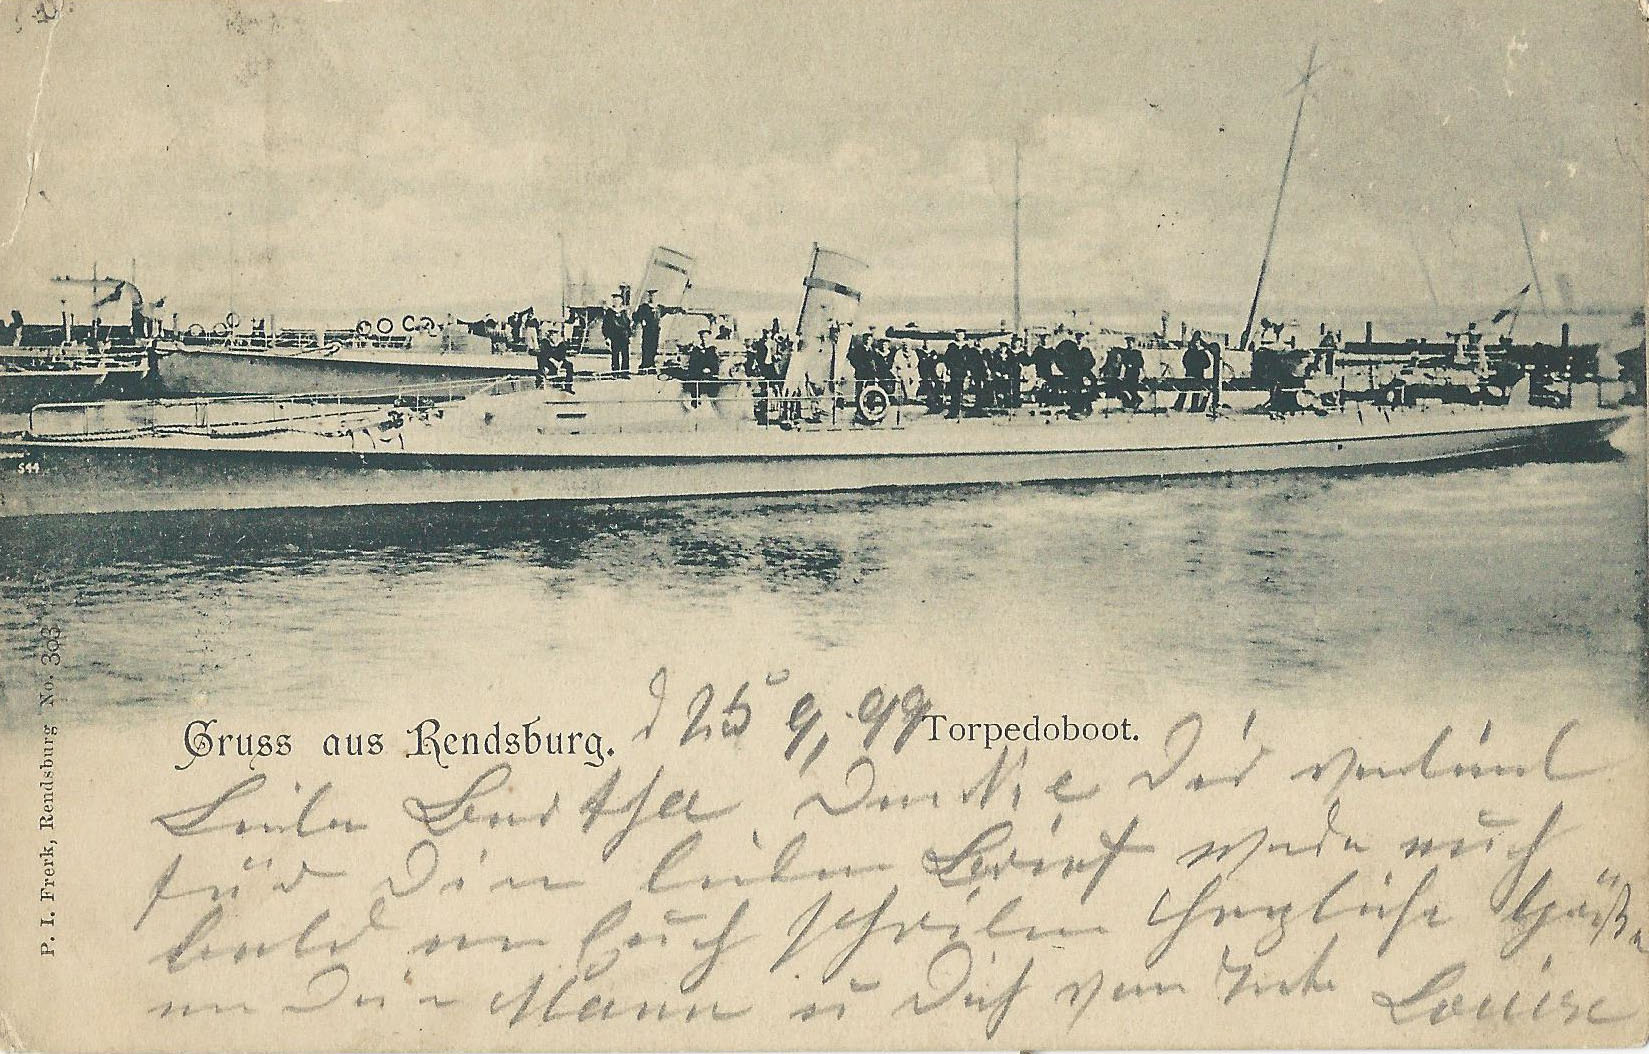 S44
P. I. Frerk, Rendsburg No. 303
Gruss aus Rendsburg.
d 25 9. 99
Torpedoboot.
Liebe Bertha Danke Dir vielmal
für Dein lieben Brief werde auch
bald an Euch schreiben herzliche Grüße
an Dein Mann u Dich von Louise